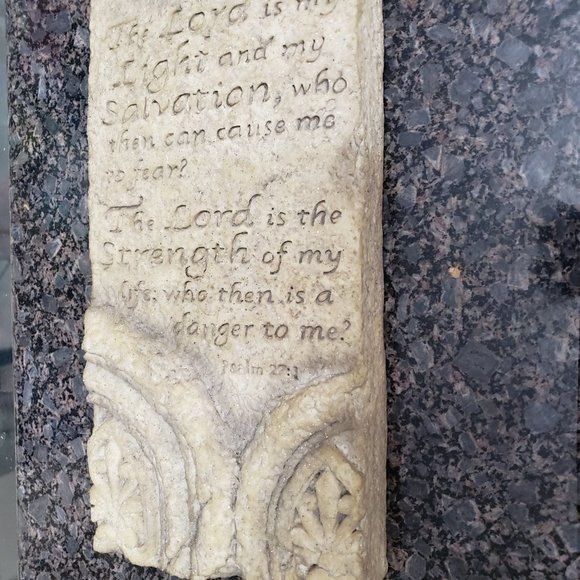 The Lord is my
Light and my
Salvation, who
then can cause me
to fear?
The Lord is the
Strength of my
life, who then is a
danger to me?
Psalm 27:1